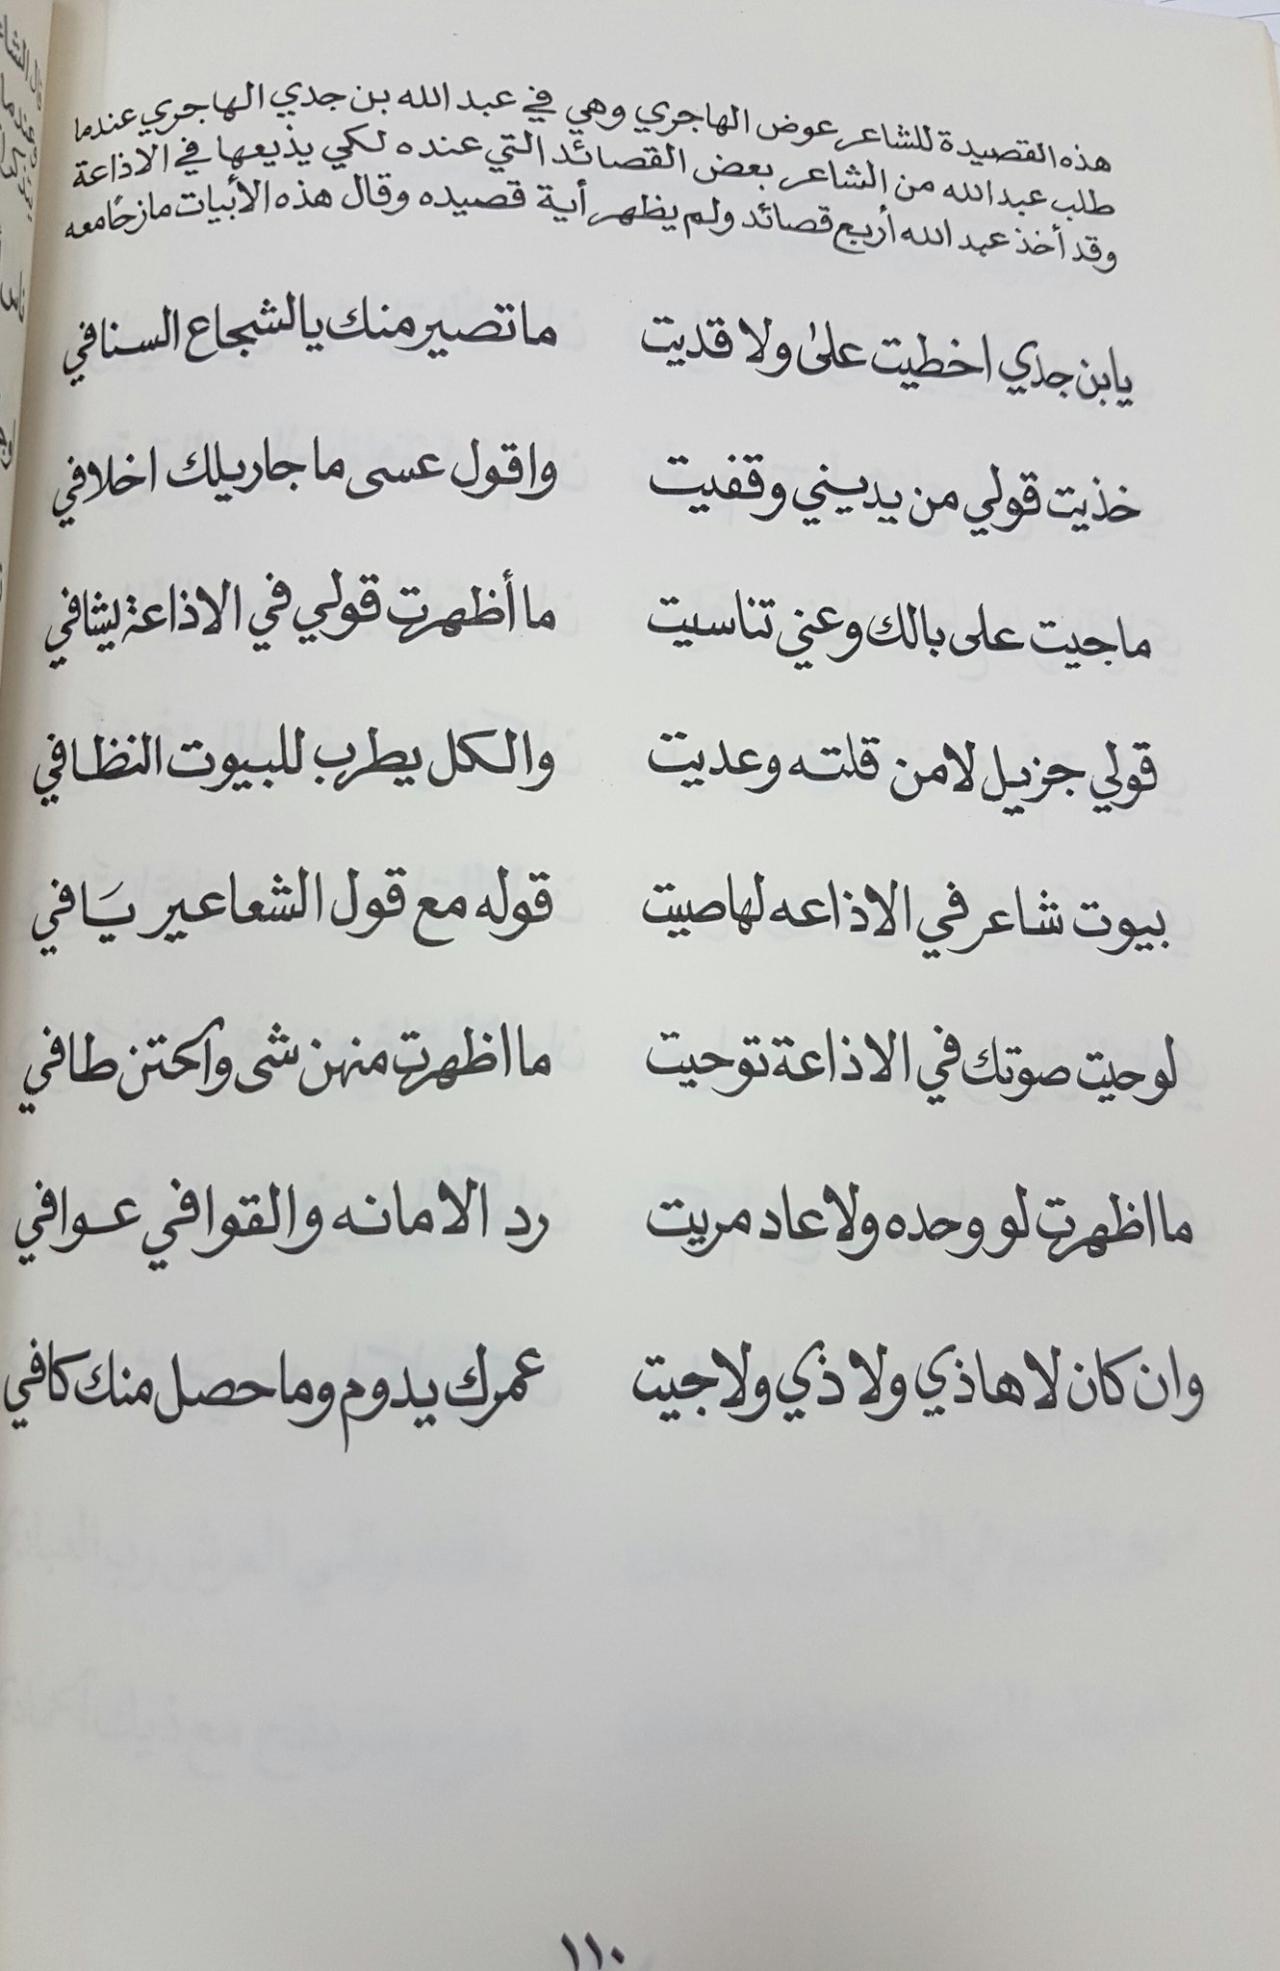 هذه القصيدة للشاعر عوض الهاجري وهي في عبد الله بن جدي الهاجري عندما
طلب عبد الله من الشاعر بعض القصائد التي عنده لكي يذيعها في الاذاعة
وقد أخذ عبد الله أربع قصائد ولم يظهر أية قصيده وقال هذه الأبيات مازحًا معه
يابن جدي اخطيت علىٰ ولا قديت ماتصير منك يالشجاع السنافي
خذيت قولي من يديني وقفيت واقول عسى ما جاريلك اخلافي
ماجيت على بالك وعني تناسيت ما أظهرت قولي في الاذاعة يشافي
قولي جزيل لامن قلته وعديت والكل يطرب للبيوت النظافي
بيوت شاعر في الاذاعه لها صيت قوله مع قول الشعاعير يَافي
لوحيت صوتك في الاذاعة توحيت ما اظهرت منهن شى واكتن طافي
ما اظهرت لو وحده ولا عاد مريت رد الامانه والقوافي عوافي
وان كان لا هاذي ولا ذي ولا جيت عمرك يدوم وما حصل منك كافي
١١٠